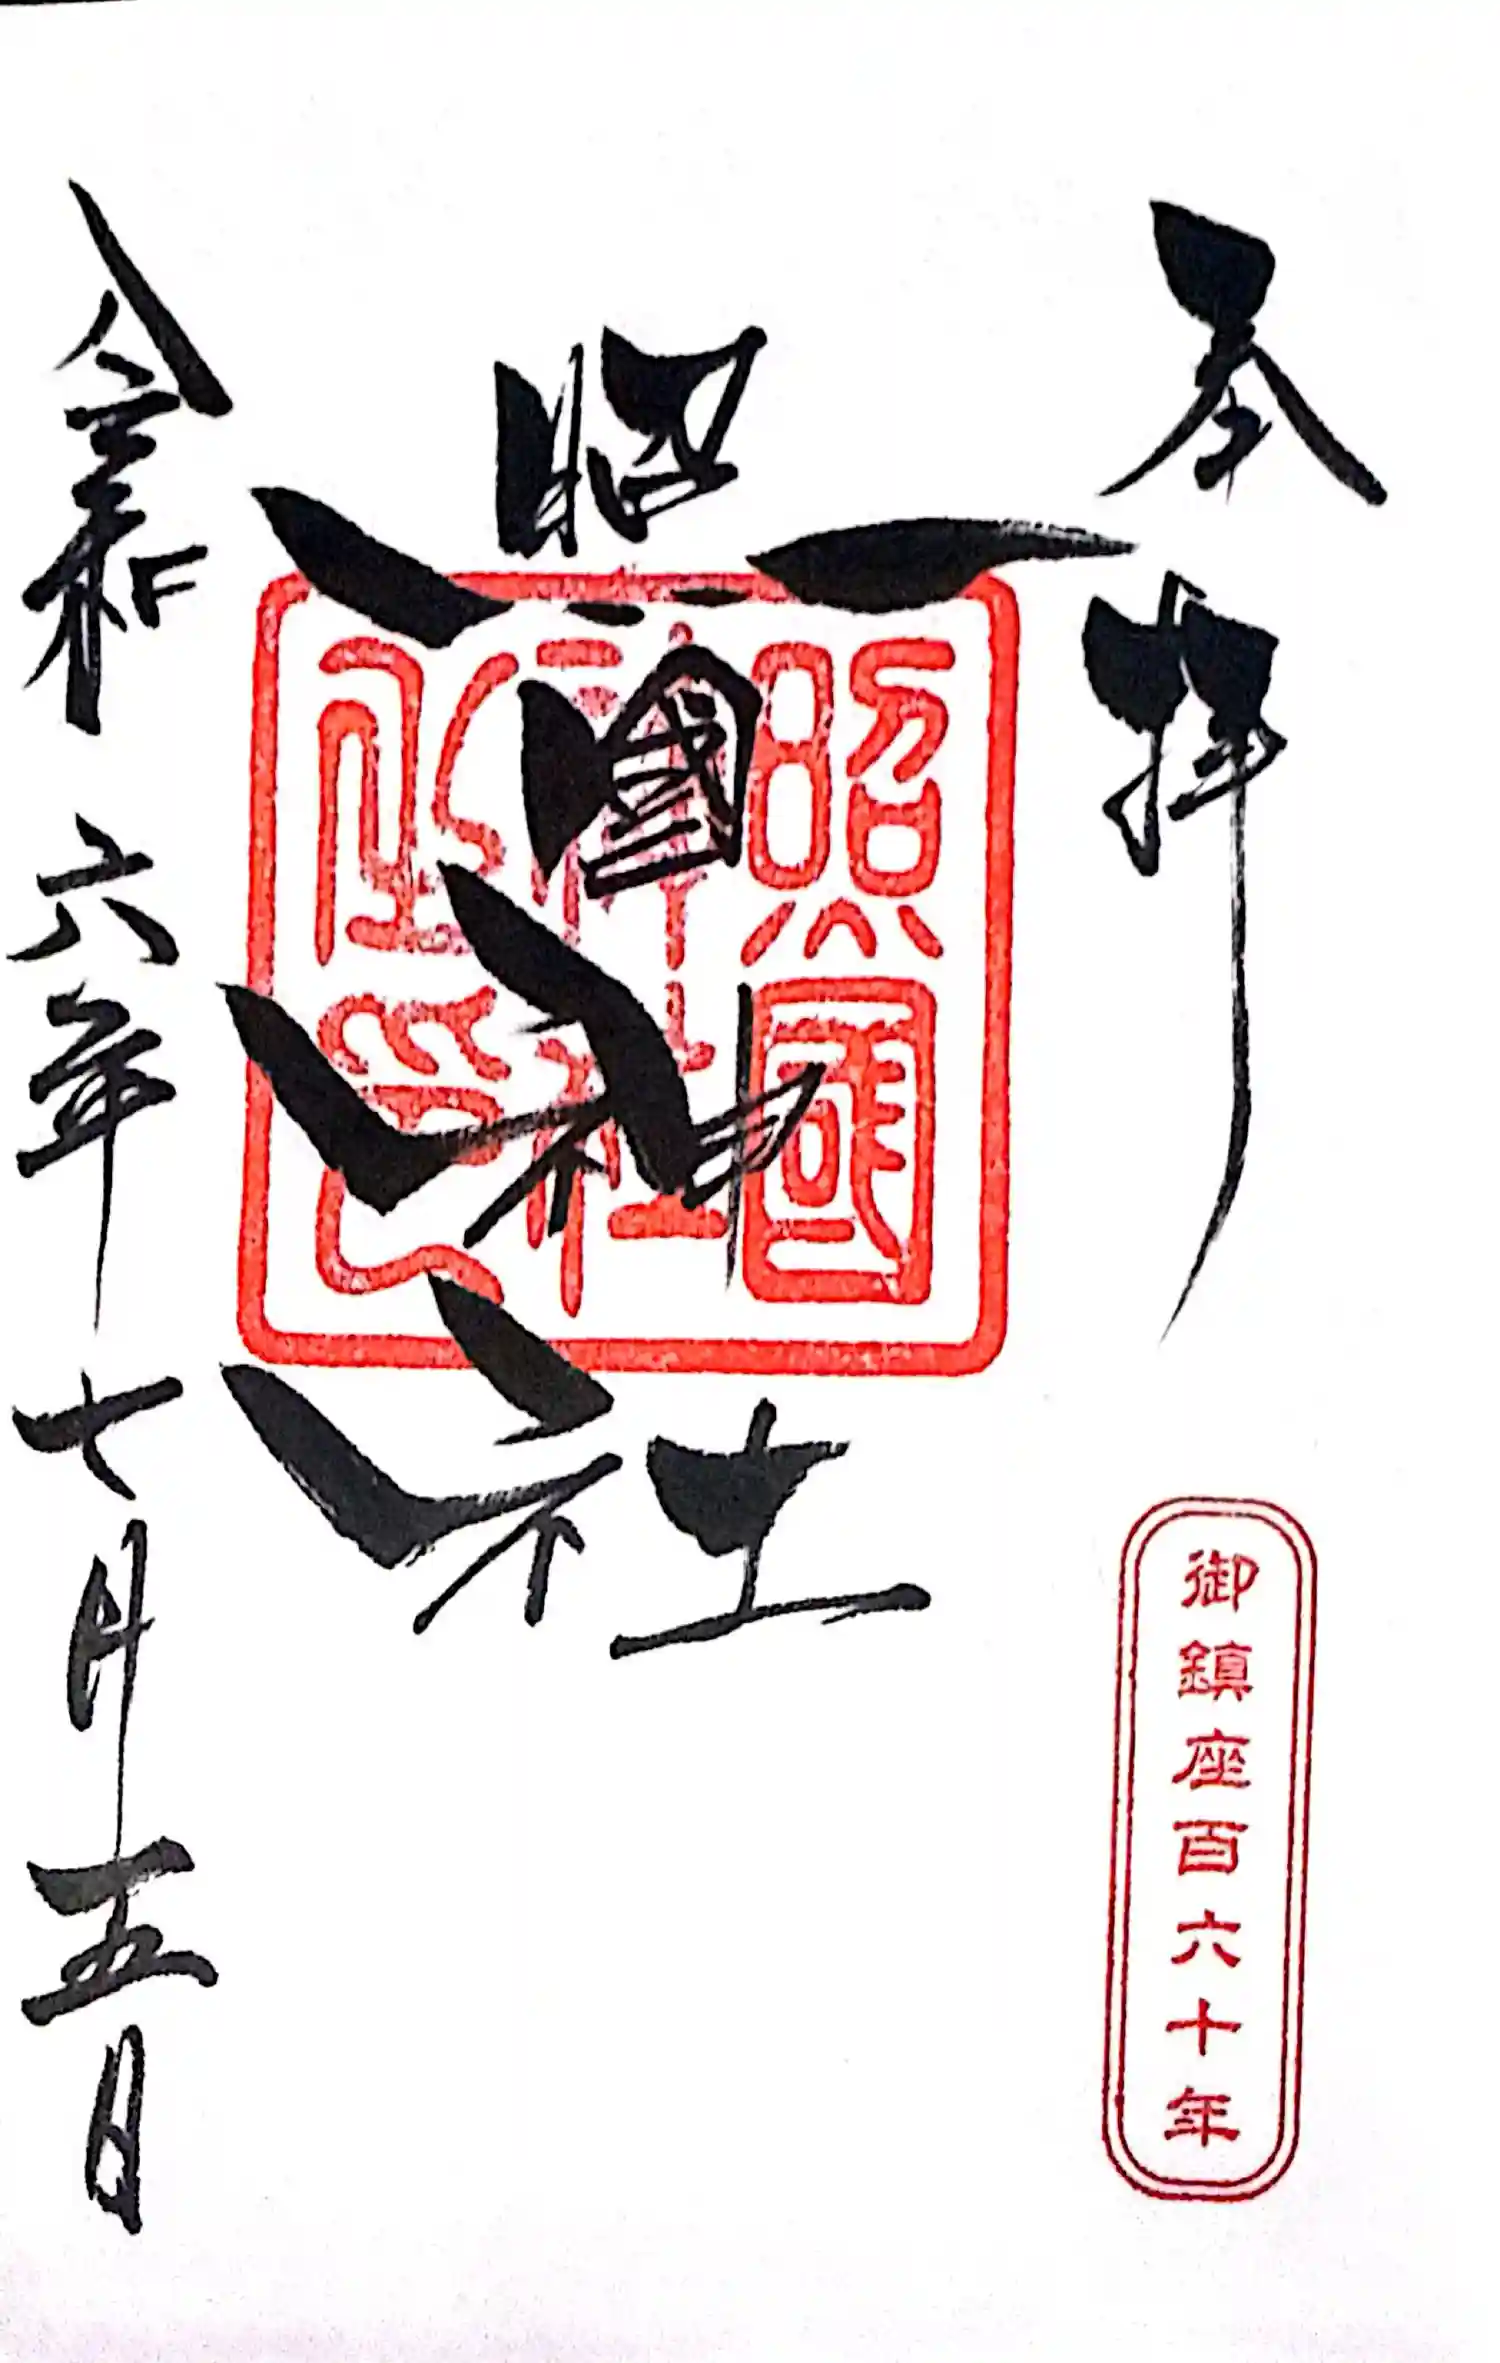 奉拝
御鎮座百六十年
照國神社
照國神社之印
令和六年七月五日